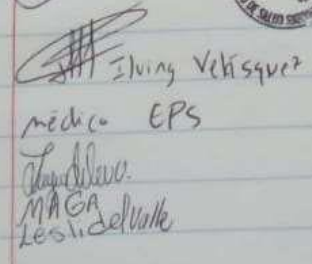 DE SALUD
Ilving Velasquez
médico EPS
MAGA
Leslidelvalle